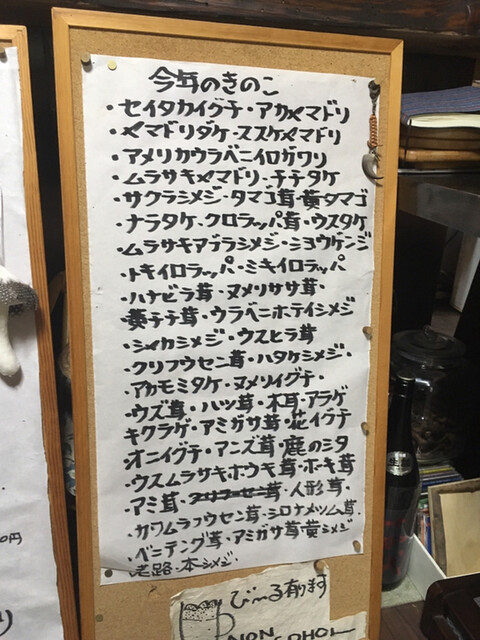 今年のきのこ
・セイタカイグチ・アカヤマドリ
・ヤマドリタケ・ススケヤマドリ
・アメリカウラベニイロガワリ
・ムラサキヤマドリ・チチタケ
・サクラシメジ・タマゴ茸・黄タマゴ
・ナラタケ・クロラッパ茸・ウスタケ
・ムラサキアブラシメジ・ショウゲンジ
・トキイロラッパ・ミキイロラッパ
・ハナビラ茸・ヌメリササ茸・
・黄チチ茸・ウラベニホテイシメジ
・シャカシメジ・ウスヒラ茸
・クリフウセン茸・ハタケシメジ・
・アカモミタケ・ヌメリイグチ・
・ウズ茸・ハツ茸・木耳・アラゲ
キクラゲ・アミガサ茸・花イグチ
・オニイグチ・アンズ茸・鹿のシタ
・ウスムラサキホウキ茸・ホーキ茸
・アミ茸・人形茸・
・カワムラフウセン茸・シロナメツム茸・
・ベニテング茸・アミガサ茸・黄シメジ
・老路・本シメジ
びーる有ります
NON
0円
り